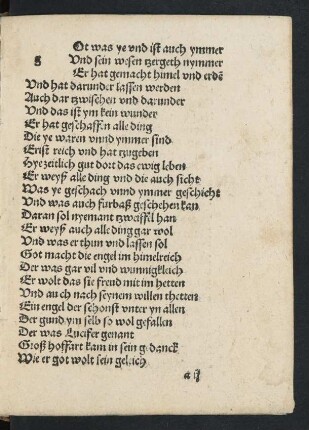 Ot was ye vnd ist auch ymmer
g Vnd sein wesen tzergeth nymmer
Er hat gemacht himel vnd erdē
Vnd hat darunder lassen werden
Auch dar tzwischen vnd darunder
Vnd das ist ym kein wunder
Er hat geschaffen alle ding
Die ye waren vnnd ymmer sind
Er ist reich vnd hat tzugeben
Hye zeitlich gut dort das ewig leben
Er weyß alle ding vnd die auch sicht
Was ye geschach vnnd ymmer geschicht
Vnd was auch furbaß geschehen kan
Daran sol nyemant tzweiffel han
Er weyß auch alle ding gar wol
Vnd was er thun vnd lassen sol
Got macht die engel im himelreich
Der was gar vil vnd wunnigkleich
Er wolt das sie freud mit im hetten
Vnd auch nach seynem willen thetten
Ein engel der schonst vnter yn allen
Der gund ym selb so wol gefallen
Der was Lucifer genant
Groß hoffart kam in sein gedanck
Wie er got wolt sein geleich
a ij